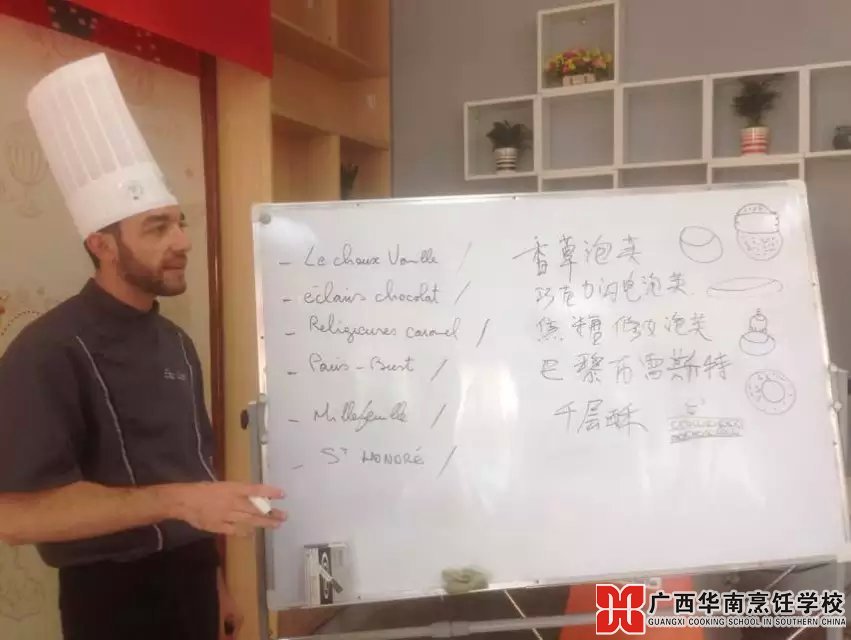 - Le choux Vanille / 香草泡芙
- éclairs chocolat / 巧克力闪电泡芙
- Religieuses caramel / 焦糖修女泡芙
- Paris-Brest / 巴黎布雷斯特
- Millefeuille / 千层酥
- ST HONORÉ /
广西华南烹饪学校
GUANGXI COOKING SCHOOL IN SOUTHERN CHINA